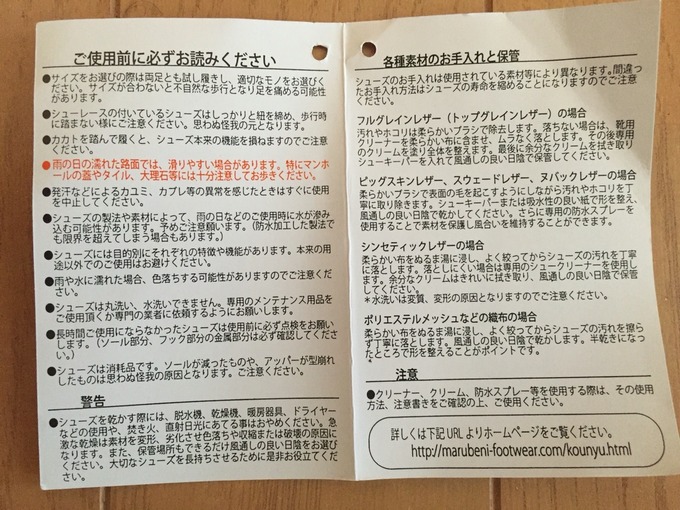 ご使用前に必ずお読みください
●サイズをお選びの際は両足とも試し履きし、適切なモノをお選びく
ださい。サイズが合わないと不自然な歩行となり足を痛める可能性
があります。
●シューレースの付いているシューズはしっかりと紐を締め、歩行時
に踏まない様にご注意ください。思わぬ怪我の元となります。
●カカトを踏んで履くと、シューズ本来の機能を損ねますのでご注意
ください。
●雨の日の濡れた路面では、滑りやすい場合があります。特にマンホ
ールの蓋やタイル、大理石等には十分注意してお歩きください。
●発汗などによるカユミ、カブレ等の異常を感じたときはすぐに使用
を中止してください。
●シューズの製法や素材によって、雨の日などのご使用時に水が滲み
込む可能性があります。予めご注意願います。（防水加工した製法で
も限界を超えてしまう場合もあります。）
●シューズには目的別にそれぞれの特徴や機能があります。本来の用
途以外でのご使用はお避けください。
●雨や水に濡れた場合、色落ちする可能性がありますのでご注意くだ
さい。
●シューズは丸洗い、水洗いできません。専用のメンテナンス用品を
ご使用頂くか専門の業者に依頼するようにお願いします。
●長時間ご使用にならなかったシューズは使用前に必ず点検をお願い
します。（ソール部分、フック部分の金属部分は必ず確認してくださ
い。）
●シューズは消耗品です。ソールが減ったものや、アッパーが型崩れ
したものは思わぬ怪我の原因となります。ご注意ください。
警告
●シューズを乾かす際には、脱水機、乾燥機、暖房器具、ドライヤー
などの使用や、焚き火、直射日光にあてる事はおやめください。急
激な乾燥は素材を変形、劣化させ色落ちや収縮または破壊の原因に
なります。また、保管場所もできるだけ風通しの良い日陰をお選び
ください。大切なシューズを長持ちさせるために是非お役立てくだ
さい。
各種素材のお手入れと保管
シューズのお手入れは使用されている素材等により異なります。間違っ
たお手入れ方法はシューズの寿命を縮めることになりますのでご注意
ください。
フルグレインレザー（トップグレインレザー）の場合
汚れやホコリは柔らかいブラシで除去します。落ちない場合は、靴用
クリーナーを柔らかい布に含ませ、ムラなく落とします。その後専用
のクリームを塗り全体を整えます。最後に余分なクリームを拭き取り
シューキーパーを入れて風通しの良い日陰で保管してください。
ピッグスキンレザー、スウェードレザー、ヌバックレザーの場合
柔らかいブラシで表面の毛を起こすようにしながら汚れやホコリを丁
寧に取り除きます。シューキーパーまたは吸水性の良い紙で形を整え、
風通しの良い日陰で乾かしてください。さらに専用の防水スプレーを
使用することで素材を保護し風合いを維持することができます。
シンセティックレザーの場合
柔らかい布をぬるま湯に浸し、よく絞ってからシューズの汚れを丁寧
に落とします。落としにくい場合は専用のシュークリーナーを使用しま
す。余分なクリームはきれいに拭き取り、風通しの良い日陰で保管して
ください。
＊水洗いは変質、変形の原因となりますのでご注意ください。
ポリエステルメッシュなどの織布の場合
柔らかい布をぬるま湯に浸し、よく絞ってからシューズの汚れを擦ら
ず丁寧に落とします。風通しの良い日陰で乾かします。半乾きになっ
たところで形を整えることがポイントです。
注意
●クリーナー、クリーム、防水スプレー等を使用する際は、その使用
方法、注意書きをご確認の上、ご使用ください。
詳しくは下記URLよりホームページをご覧ください。
http://marubeni-footwear.com/kounyu.html